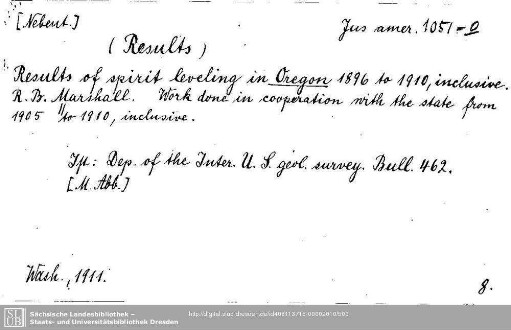 [Nebent.]
Jus amer. 1051-o
(Results)
Results of spirit leveling in Oregon 1896 to 1910, inclusive.
R. B. Marshall. Work done in cooperation with the state from
1905 to 1910, inclusive.
Dep. of the Inter. U. S. geol. survey. Bull. 462.
[M. Abb.]
Wash., 1911.
8.
SLUB
Sächsische Landesbibliothek –
Staats- und Universitätsbibliothek Dresden